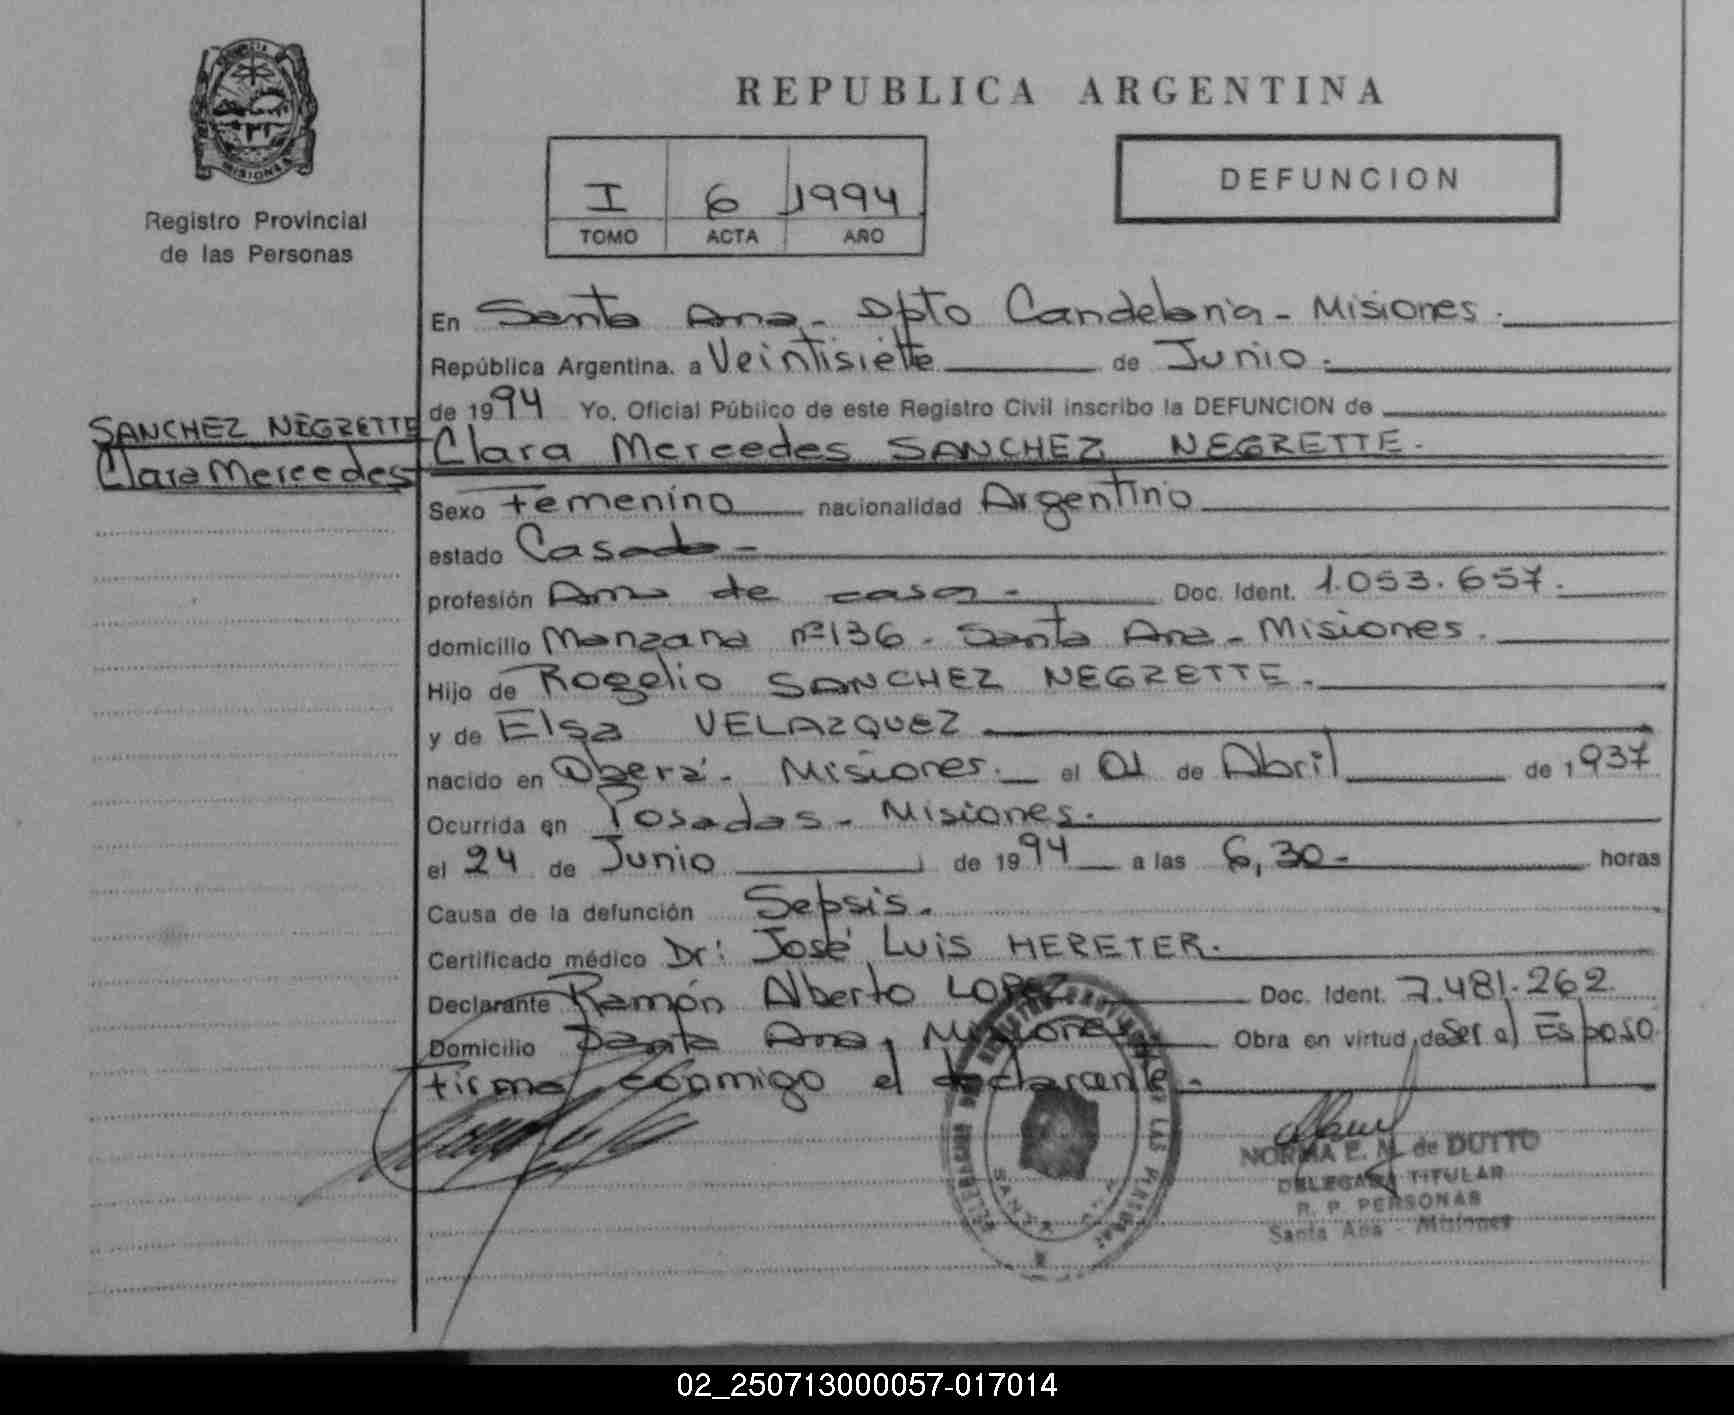 PROVINCIA DE
MISIONES
Registro Provincial
de las Personas
REPUBLICA ARGENTINA
I 6 1994
TOMO ACTA AÑO
DEFUNCION
En Santa Ana - Dpto Candelaria - Misiones.
República Argentina, a Veintisiete de Junio.
de 1994 Yo, Oficial Público de este Registro Civil inscribo la DEFUNCION de
SANCHEZ NEGRETTE
Clara Mercedes
Clara Mercedes SANCHEZ NEGRETTE.
Sexo Femenino nacionalidad Argentino
estado Casado -
profesión Ama de casa - Doc. Ident. 1.053.657.
domicilio Manzana nº 136 - Santa Ana - Misiones.
Hijo de Rogelio SANCHEZ NEGRETTE.
y de Elsa VELAZQUEZ
nacido en Oberá - Misiones. el 01 de Abril de 1937
Ocurrida en Posadas - Misiones.
el 24 de Junio de 1994 a las 6,30- horas
Causa de la defunción Sepsis.
Certificado médico Dr: José Luis HERETER.
Declarante Ramón Alberto LOPEZ Doc. Ident. 7.481.262.
Domicilio Santa Ana, Misiones Obra en virtud de Ser el Esposo
Firma conmigo el declarante.
NORMA E. M. de DUTTO
DELEGADA TITULAR
R. P. PERSONAS
Santa Ana - Misiones
02_250713000057-017014